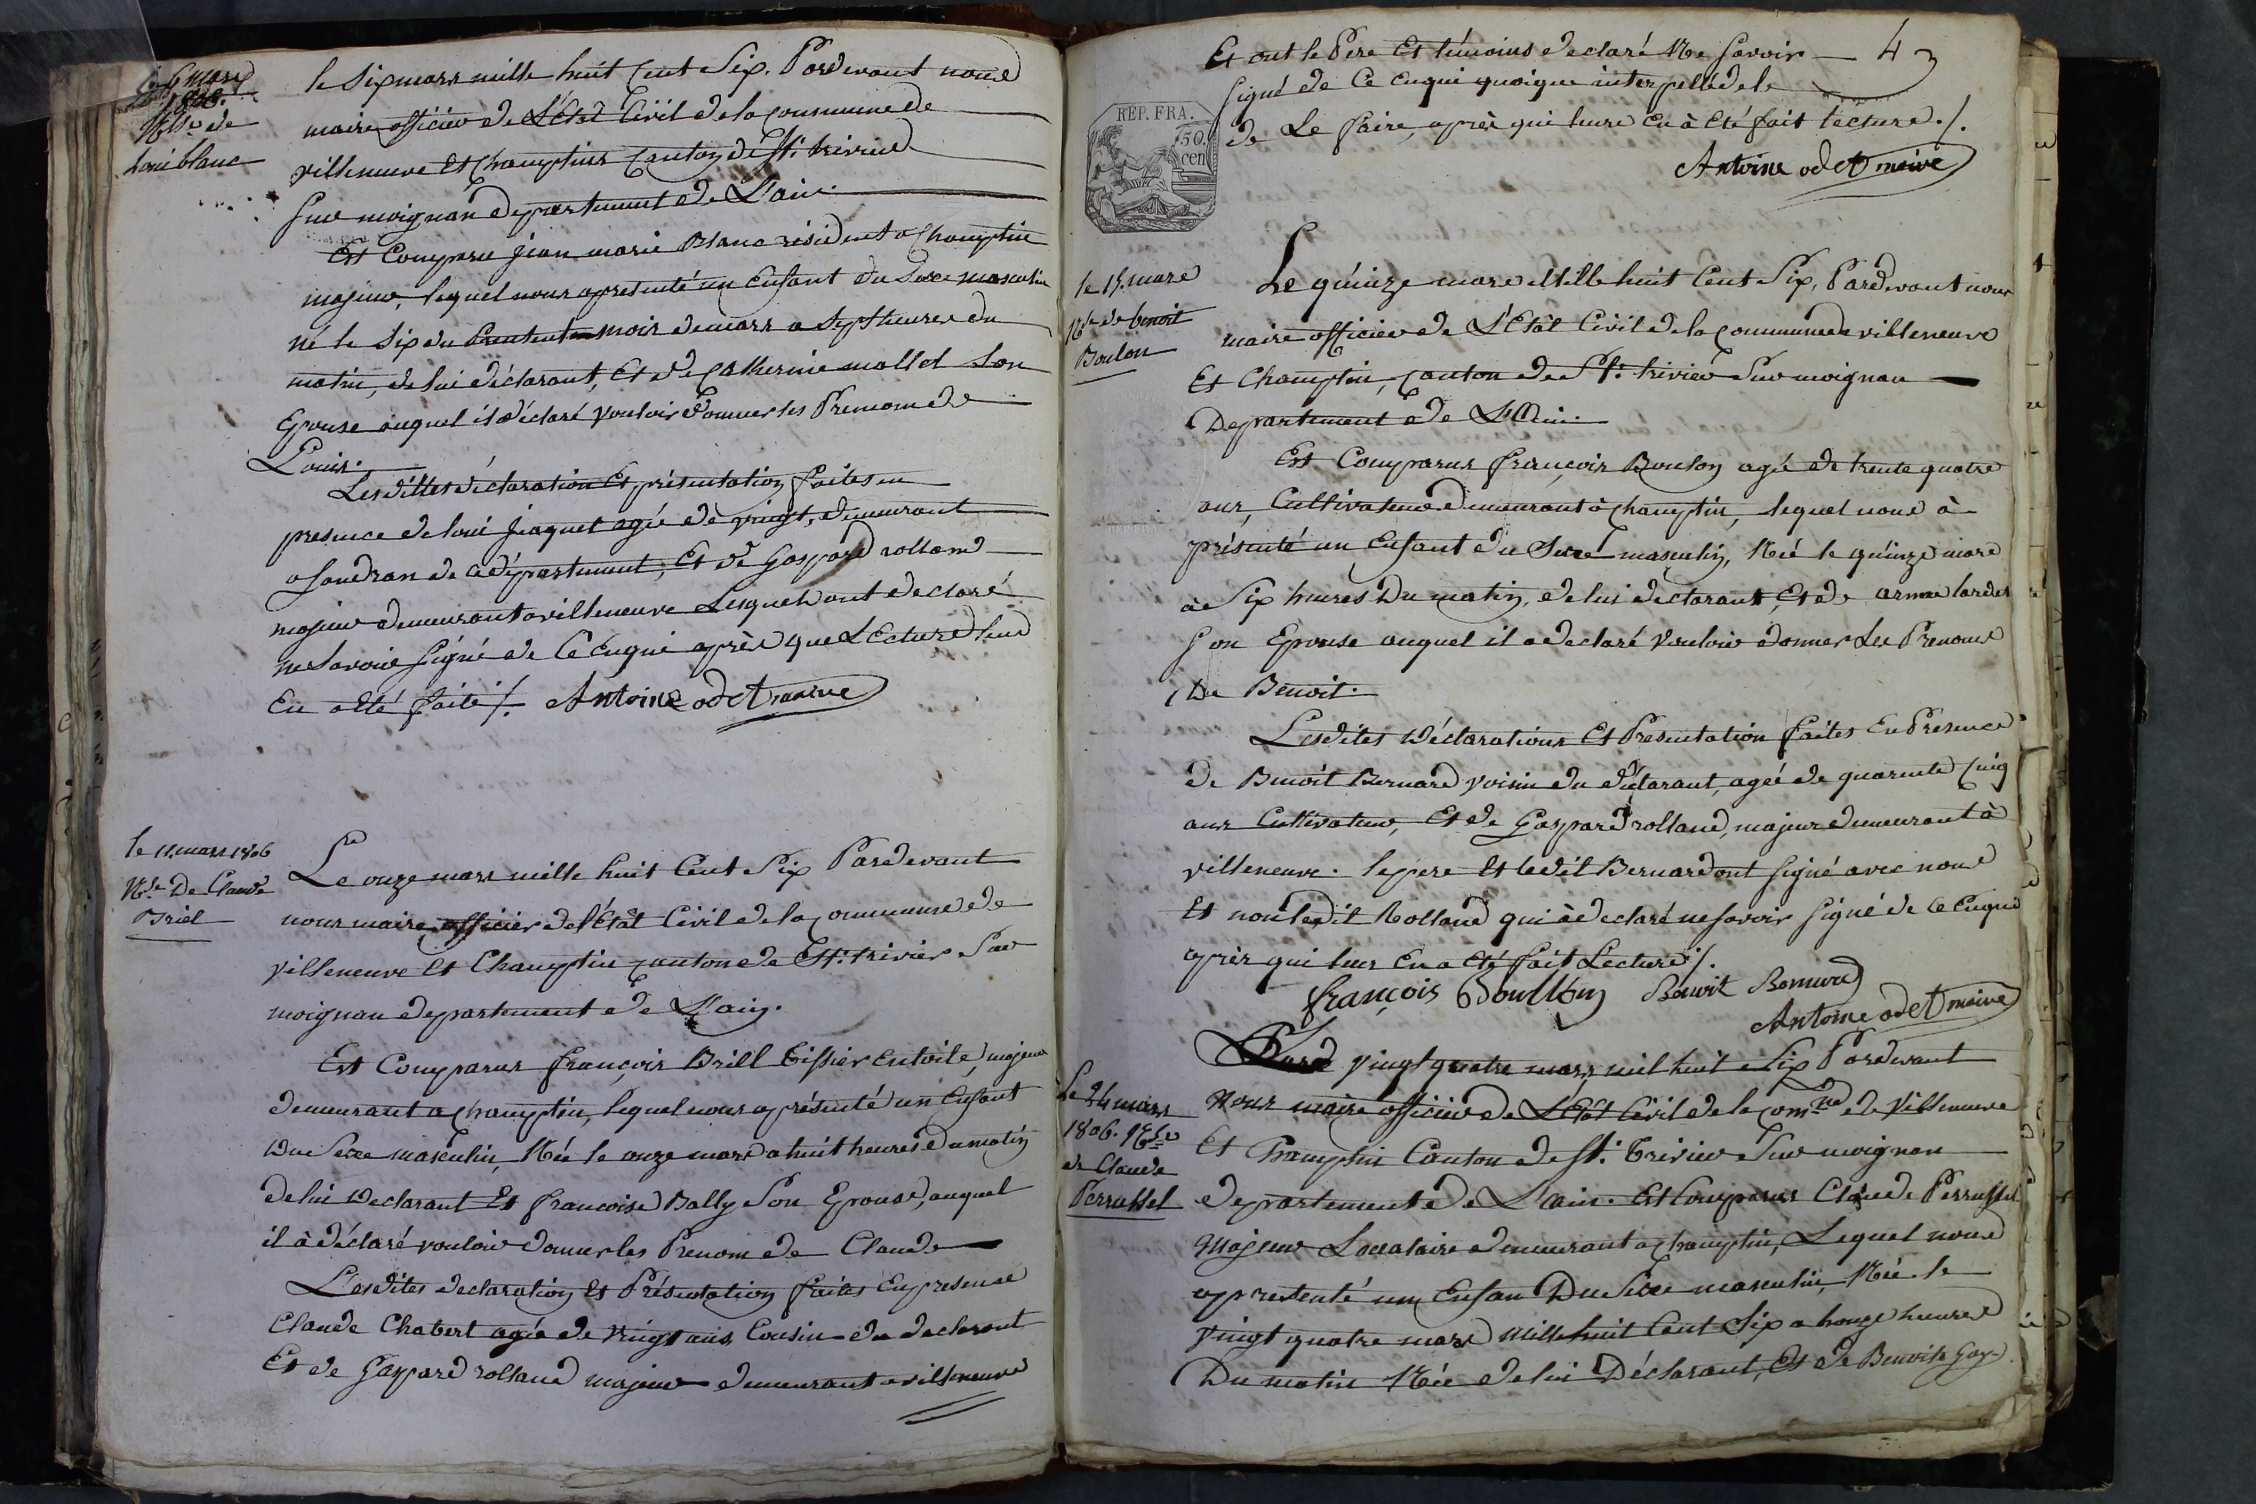 le 6 mars
1806.
N.ce de
Loui blanc
le six mars mille huit Cent Six. Pardevant nous
maire officier de L'Etat Civil de la commune de
villeneuve Et Champtins Canton de St. trivier
sur moignan departement de L'ain.
Est Comparu jean marie Blanc résident a Champtin
majeur, lequel nous a presenté un Enfant du Sexe masculin
né le Six du Present mois de mars a Sept heures du
matin, de lui déclarant, Et de Catherine mallet Son
Epouse auquel il a déclaré vouloir donner les Prenom de
Louis.
Lesdittes déclaration Et présentation faites en
presence de loui jaquet agé de vingt, demeurant
a Sandran de ce département, Et de Gaspard rolland
majeur demeurant a villeneuve Lesquels ont declaré
ne Savoir Signé de Ce Enqui après que Lecture leur
En a été faite /. Antoine odet maire
le 11. mars 1806
N.ce De Claude
Briel
Le onze mars mille huit Cent Six Pardevant
nous maire officier de l'Etat Civil de la commune de
villeneuve Et Champtin canton de St. trivier Sur
moignan departement de L'ain.
Est Comparus françois Brill tissier en toile, majeur
demeurant a Champtin, lequel nous a présenté un Enfant
Du Sexe masculin, Née le onze mars a huit heures du matin
de lui Declarant Et francoise Bally Son Epouse, auquel
il à déclaré vouloir donner les Prenom de Claude
Lesdites declaration Et Présentation faites En presence
Claude Chabert agée de vingt ans Cousin du declarant
Et de Gaspard rolland majeur demeurant a villeneuve
Et ont le Pere Et témoins declaré Ne Savoir
Signé de Ce enqui quoique interpellé de le
de Le faire, après qui leurs en à Eté fait lecture ./.
Antoine odet maire
4
REP. FRA.
50.
cen
le 15. mars
N.ce de benoit
Boulon
Le quinze mars Mille huit Cent Six, Pardevant nous
maire officier de L'Etat Civil de la commune de villeneuve
Et Champtin, Canton de St. trivier Sur moignan
Departement de L'Ain.
Est Comparus françois Boulon agé de trente quatre
ans, Cultivateur demeurant à Champtin, lequel nous à
présenté un Enfant du Sexe masculin, Née le quinze mars
à Six heures Du matin, de lui declarant, Et de anne lardet
Son Epouse auquel il a declaré vouloir donner Les Prenoms
De Benoit.
Lesdites Déclarations Et Presentation faites En Presence
de Benoit Bernard voisin du déclarant, agée de quarente Cinq
ans Cultivateur, Et de Gaspard rolland, majeur demeurant à
villeneuve. le pere Et ledit Bernard ont Signé avec nous
Et non ledit Rolland qui à declaré ne Savoir Signé de Ce Enqui
après qui leur En a eté fait Lecture /.
françois Boullon Benoit Bernard
Antoine odet maire
Le 24 mars
1806. N.ce
de Claude
Perrussel
vingt quatre mars, mil huit Six Pardevant
Nous maire officier de L'Etat Civil de la Com.ne de Villeneuve
Et Champtin Canton de St. Trivier Sur moignan
departement De L'ain. Est Comparus Claude Perrussel
Majeur Locataire demeurant a Champtin, Lequel nous
a prestenté un Enfan Du Sexe masculin, Née le
vingt quatre mars Mille huit Cent Six a honze heures
Du matin Née de lui Déclarant, Et de Benoite Gay